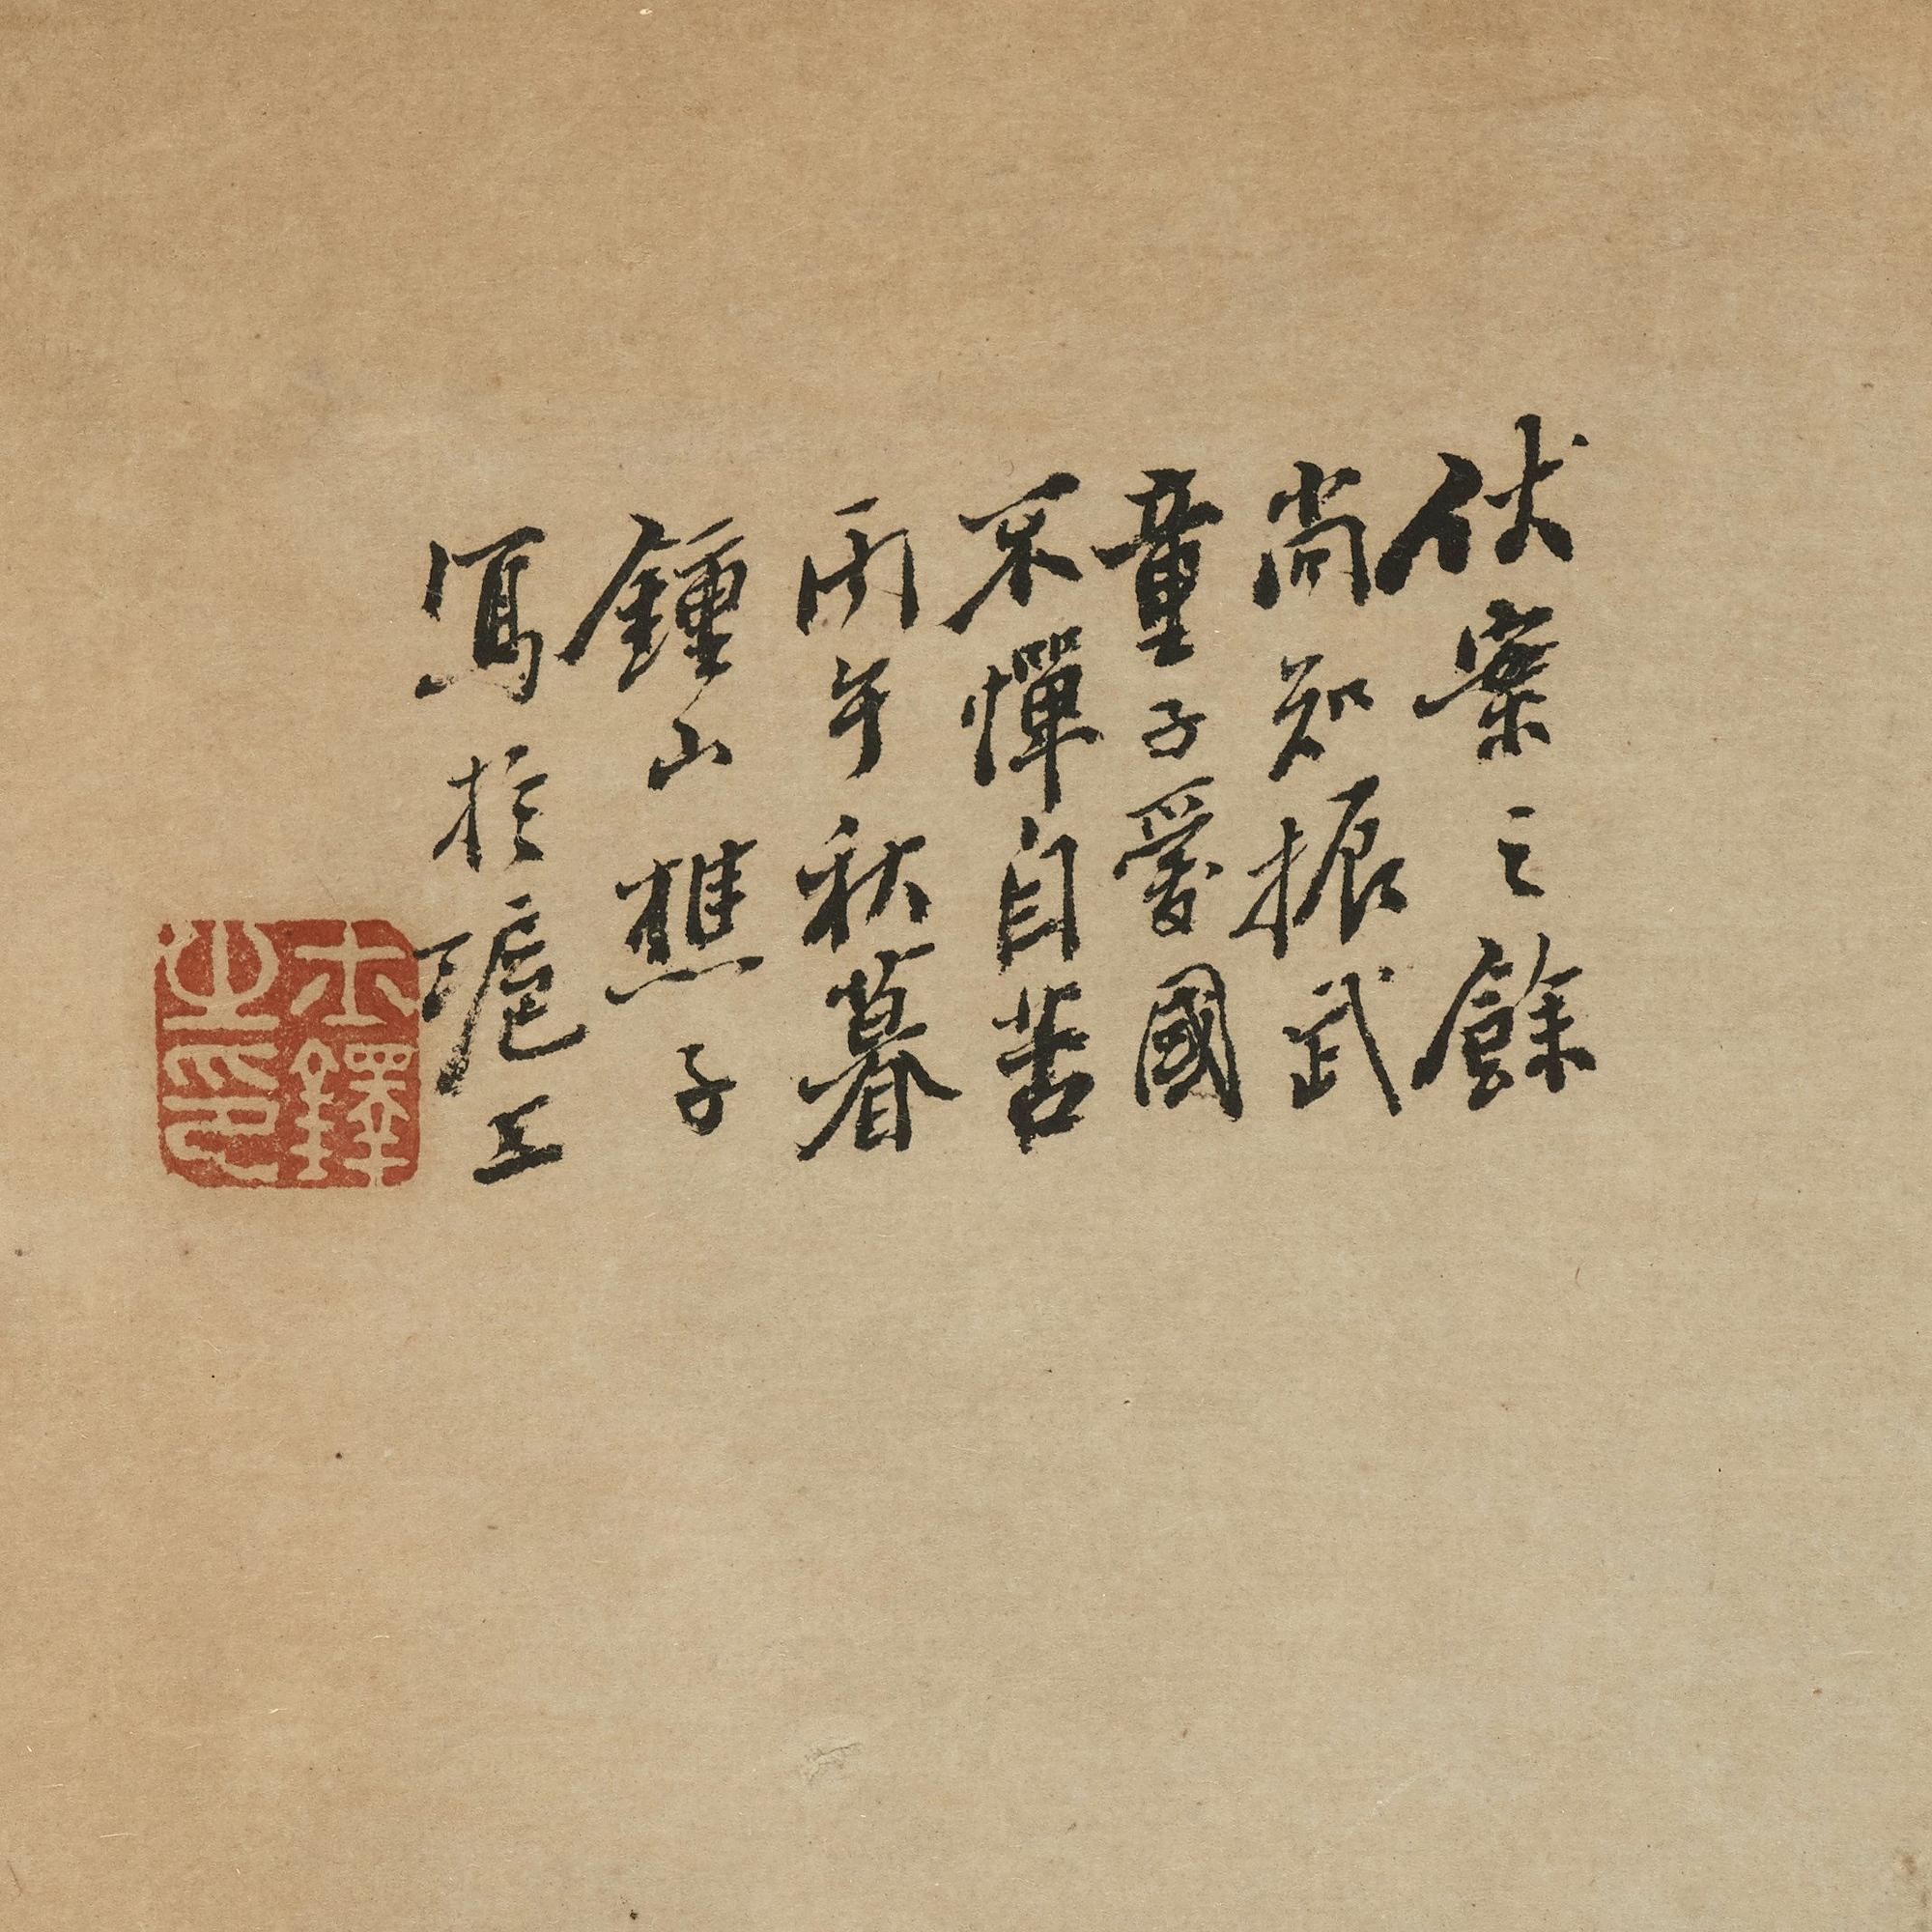 伏案之餘
尚知振武
童子愛國
不憚自苦
丙午秋暮
鍾山樵子
寫於滬上
王鐸之印